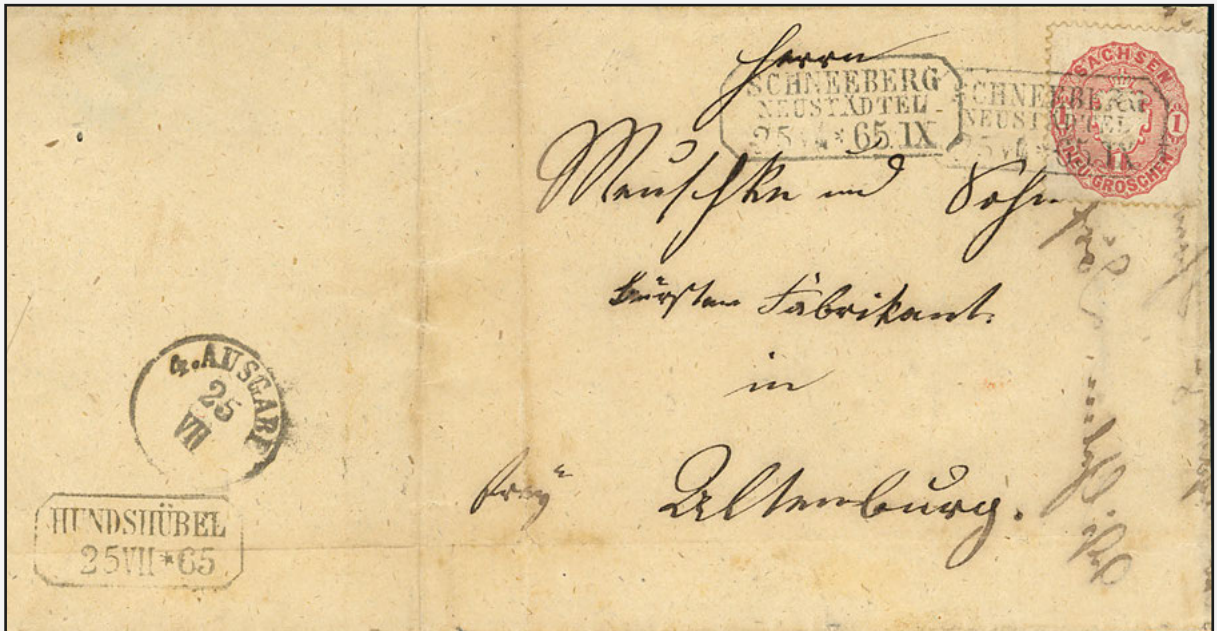 Herrn
SCHNEEBERG
NEUSTÄDTEL
25 VII * 65. IX
SCHNEEBERG
NEUSTÄDTEL
25 VII * 65. IX
SACHSEN
1 1
NEU-GROSCHEN
Meuschke und Sohn
Bürsten Fabrikant.
in
Altenburg.
4. AUSGABE
25
VII
HUNDSHÜBEL
25 VII * 65